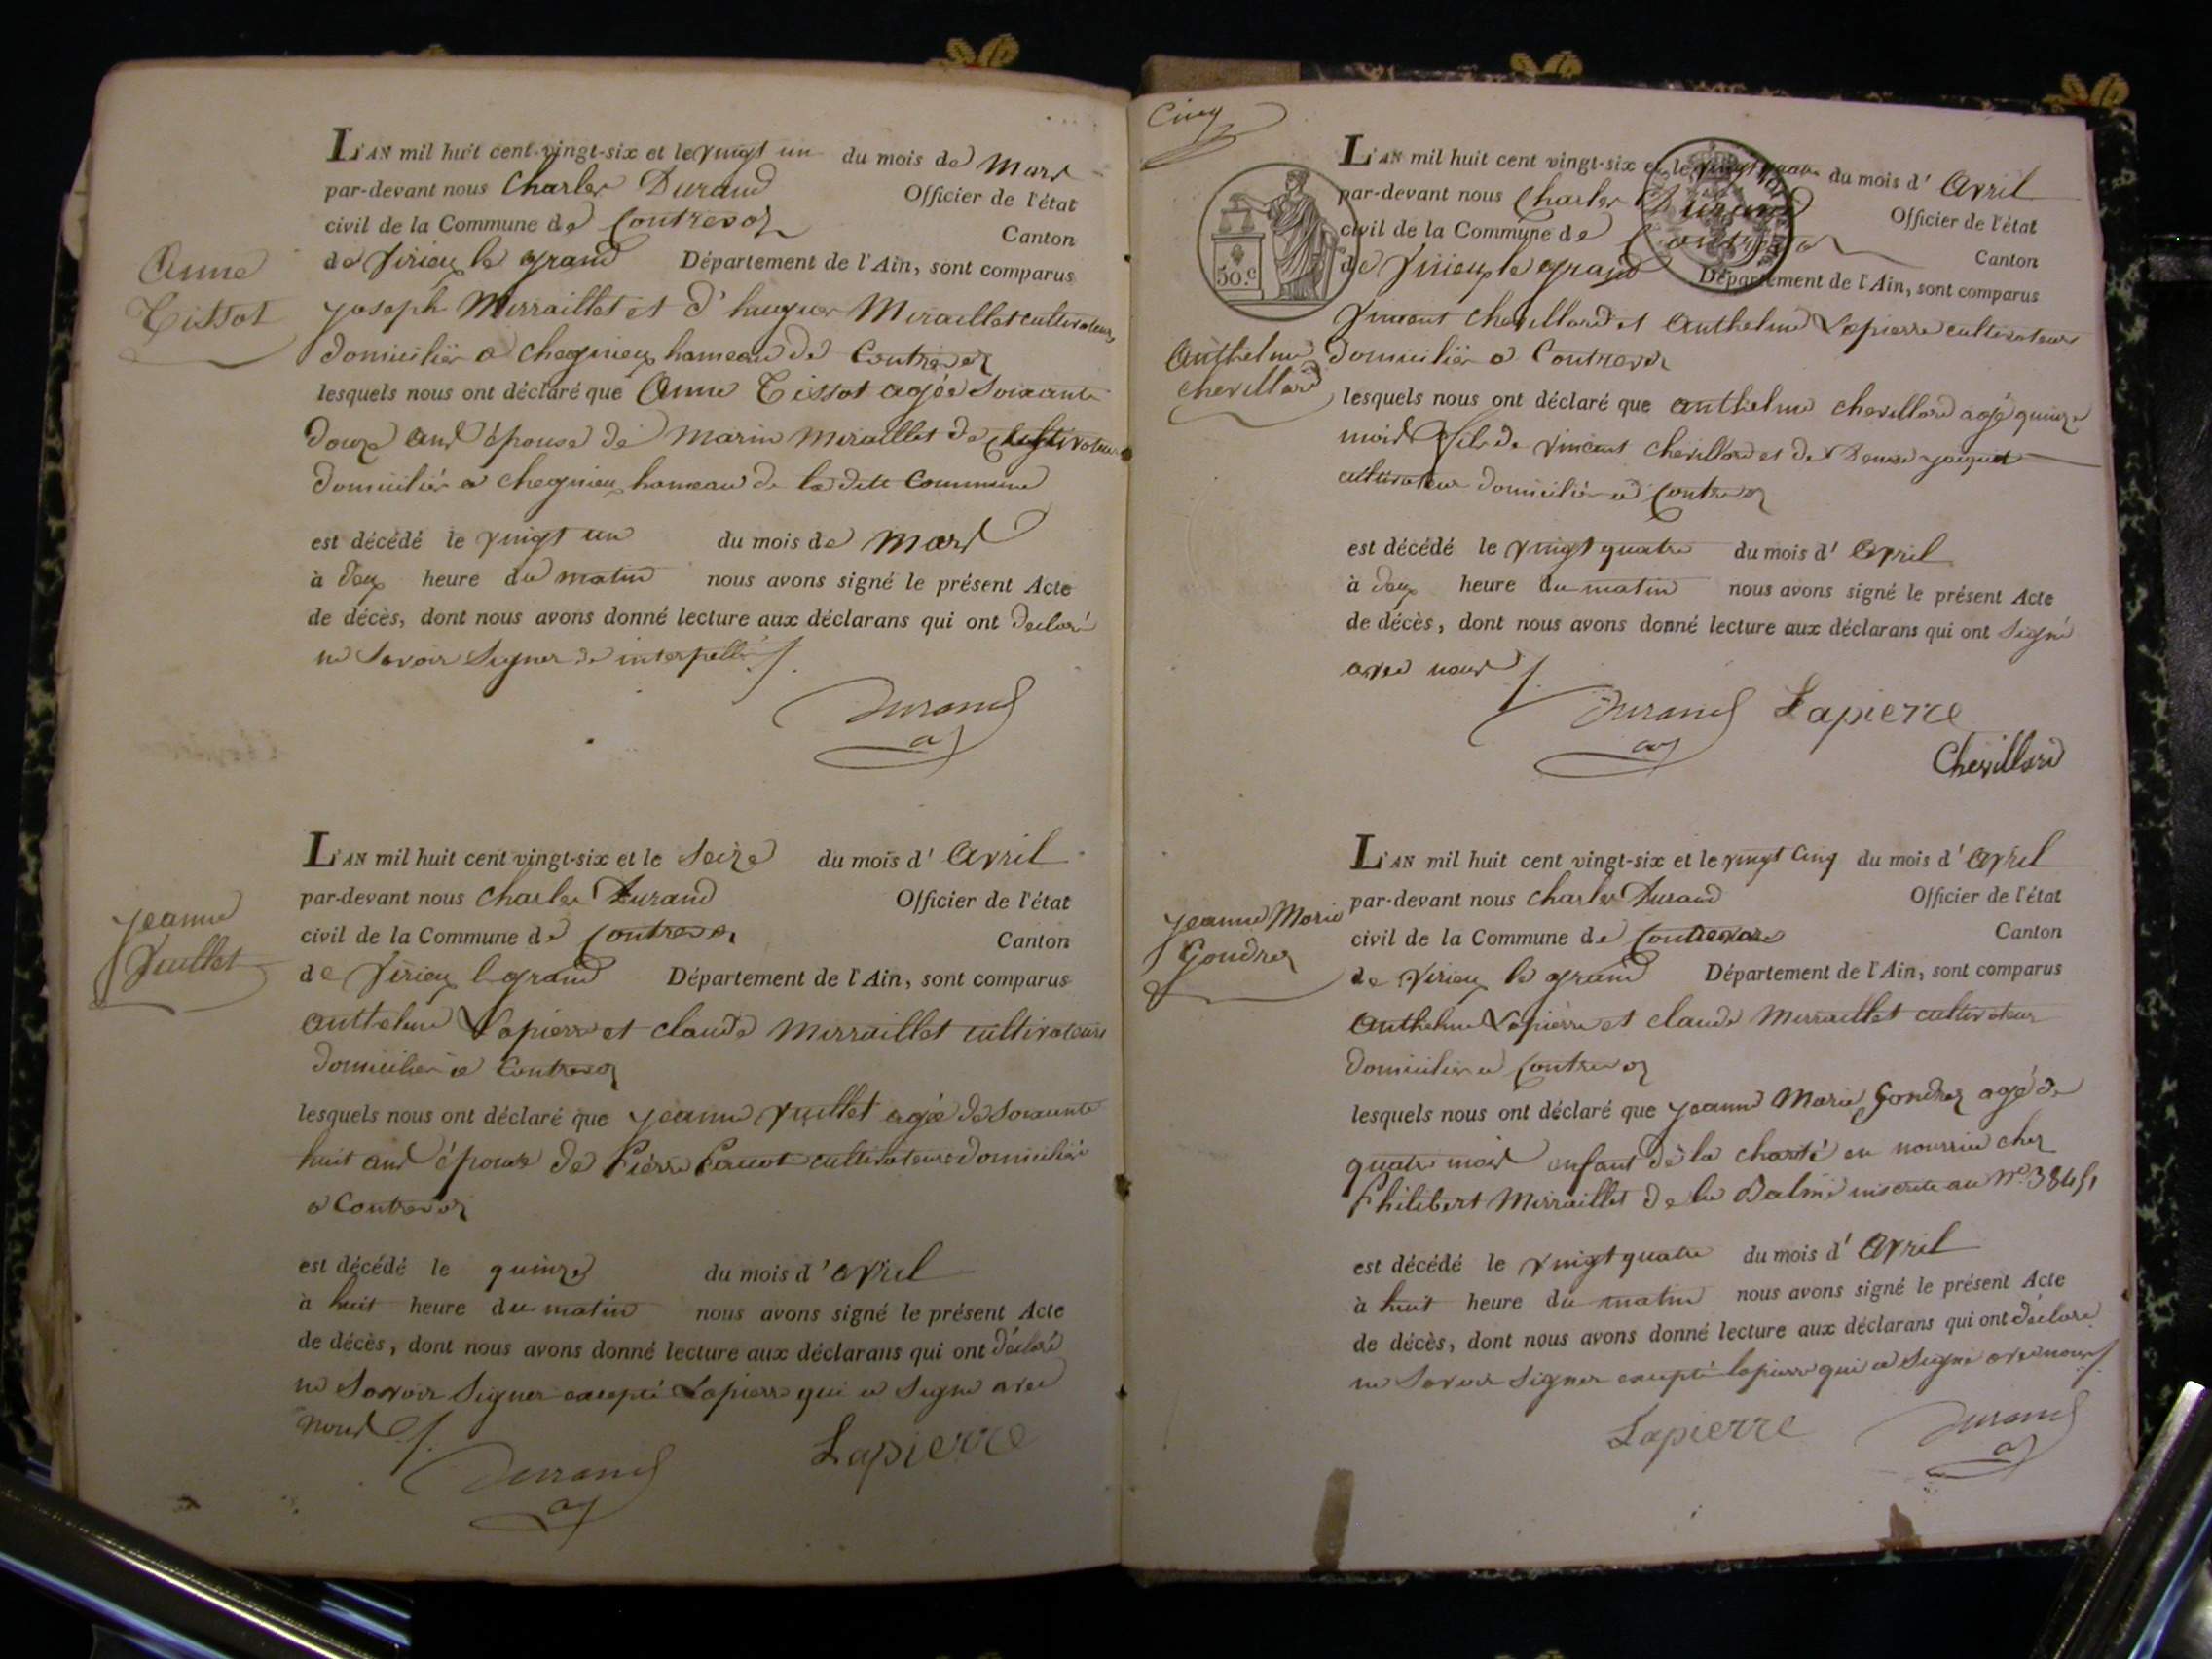 Anne
Tissot
L'AN mil huit cent vingt-six et le vingt un du mois de Mars
par-devant nous Charles Durand Officier de l'état
civil de la Commune de Contrevoz Canton
de Virieu le grand Département de l'Ain, sont comparus
joseph Mirraillet et d'hugues Miraillet cultivateurs
domiciliés a chegnieu hameau de Contrevoz
lesquels nous ont déclaré que Anne Tissot agée Soixante
douze ans épouse de marin miraillet de Cultivateur
domiciliés a chegnieu hameau de la dite Commune
est décédé le vingt un du mois de mars
à deux heure du matin nous avons signé le présent Acte
de décès, dont nous avons donné lecture aux déclarans qui ont declaré
ne Savoir Signer de interpellé /.
Durand
jeanne
Vuillet
L'AN mil huit cent vingt-six et le Seize du mois d' Avril
par-devant nous Charles Durand Officier de l'état
civil de la Commune de Contrevoz Canton
de Virieu le grand Département de l'Ain, sont comparus
anthelme Lapierre et claude Mirraillet cultivateurs
domiciliés a Contrevoz
lesquels nous ont déclaré que jeanne Vuillet agée de Soixante
huit ans épouse de Pierre cultivateurs domiciliés
a Contrevoz
est décédé le quinze du mois d' avril
à huit heure du matin nous avons signé le présent Acte
de décès, dont nous avons donné lecture aux déclarans qui ont déclaré
ne Savoir Signer excepté Lapierre qui a Signé avec
nous /.
Durand Lapierre
Cinq
50.c
L'AN mil huit cent vingt-six et le vingt quatre du mois d' Avril
par-devant nous Charles Durand Officier de l'état
civil de la Commune de Contrevoz Canton
de Virieu le grand Département de l'Ain, sont comparus
Vincent Chevillard et Anthelme Lapierre cultivateurs
Anthelme
chevillard
domiciliés a Contrevoz
lesquels nous ont déclaré que anthelme chevillard agé quinze
mois fils de Vincent Chevillard et de Denise jaquet
cultivateur domiciliés a Contrevoz
est décédé le vingt quatre du mois d' Avril
à deux heure du matin nous avons signé le présent Acte
de décès, dont nous avons donné lecture aux déclarans qui ont Signé
avec nous /.
Durand Lapierre
Chevillard
jeanne Marie
Gondrez
L'AN mil huit cent vingt-six et le vingt Cinq du mois d' Avril
par-devant nous charles Durand Officier de l'état
civil de la Commune de Contrevoz Canton
de Virieu le grand Département de l'Ain, sont comparus
Anthelme Lapierre et claude Mirraillet cultivateur
domiciliés a Contrevoz
lesquels nous ont déclaré que jeanne Marie Gondrez agé de
quatre mois enfant de la charité en nourrice chez
Philibert Mirraillet de la Balme inscrite au N.o
est décédé le vingt quatre du mois d' Avril
à huit heure du matin nous avons signé le présent Acte
de décès, dont nous avons donné lecture aux déclarans qui ont déclaré
ne Savoir Signer excepté lapierre qui a Signé avec nous /.
Lapierre Durand